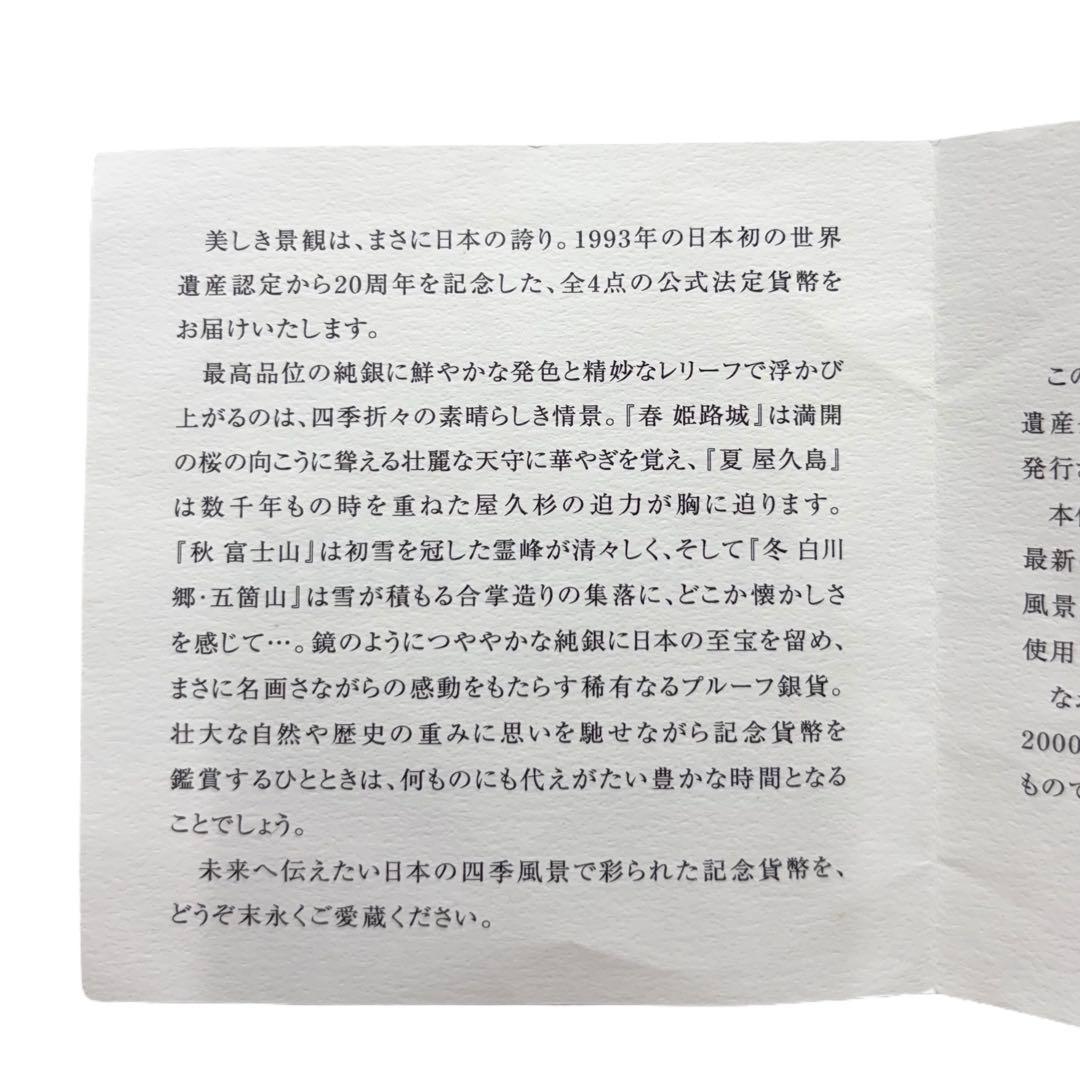 美しき景観は、まさに日本の誇り。1993年の日本初の世界
遺産認定から20周年を記念した、全4点の公式法定貨幣を
お届けいたします。
最高品位の純銀に鮮やかな発色と精妙なレリーフで浮かび
上がるのは、四季折々の素晴らしき情景。『春 姫路城』は満開
の桜の向こうに聳える壮麗な天守に華やぎを覚え、『夏 屋久島』
は数千年もの時を重ねた屋久杉の迫力が胸に迫ります。
『秋 富士山』は初雪を冠した霊峰が清々しく、そして『冬 白川
郷・五箇山』は雪が積もる合掌造りの集落に、どこか懐かしさ
を感じて…。鏡のようにつややかな純銀に日本の至宝を留め、
まさに名画さながらの感動をもたらす稀有なるプルーフ銀貨。
壮大な自然や歴史の重みに思いを馳せながら記念貨幣を
鑑賞するひとときは、何ものにも代えがたい豊かな時間となる
ことでしょう。
未来へ伝えたい日本の四季風景で彩られた記念貨幣を、
どうぞ末永くご愛蔵ください。
この
遺産
発行
本
最新
風景
使用
な
2000
もので